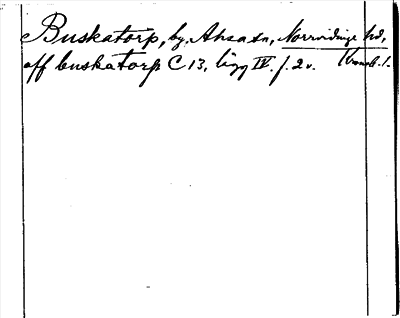 Buskatorp, by, Ahsa sn, Norrvidinge hd,
off buskatorp C 13, ligg IV. f. 2 v. Kronob. l.